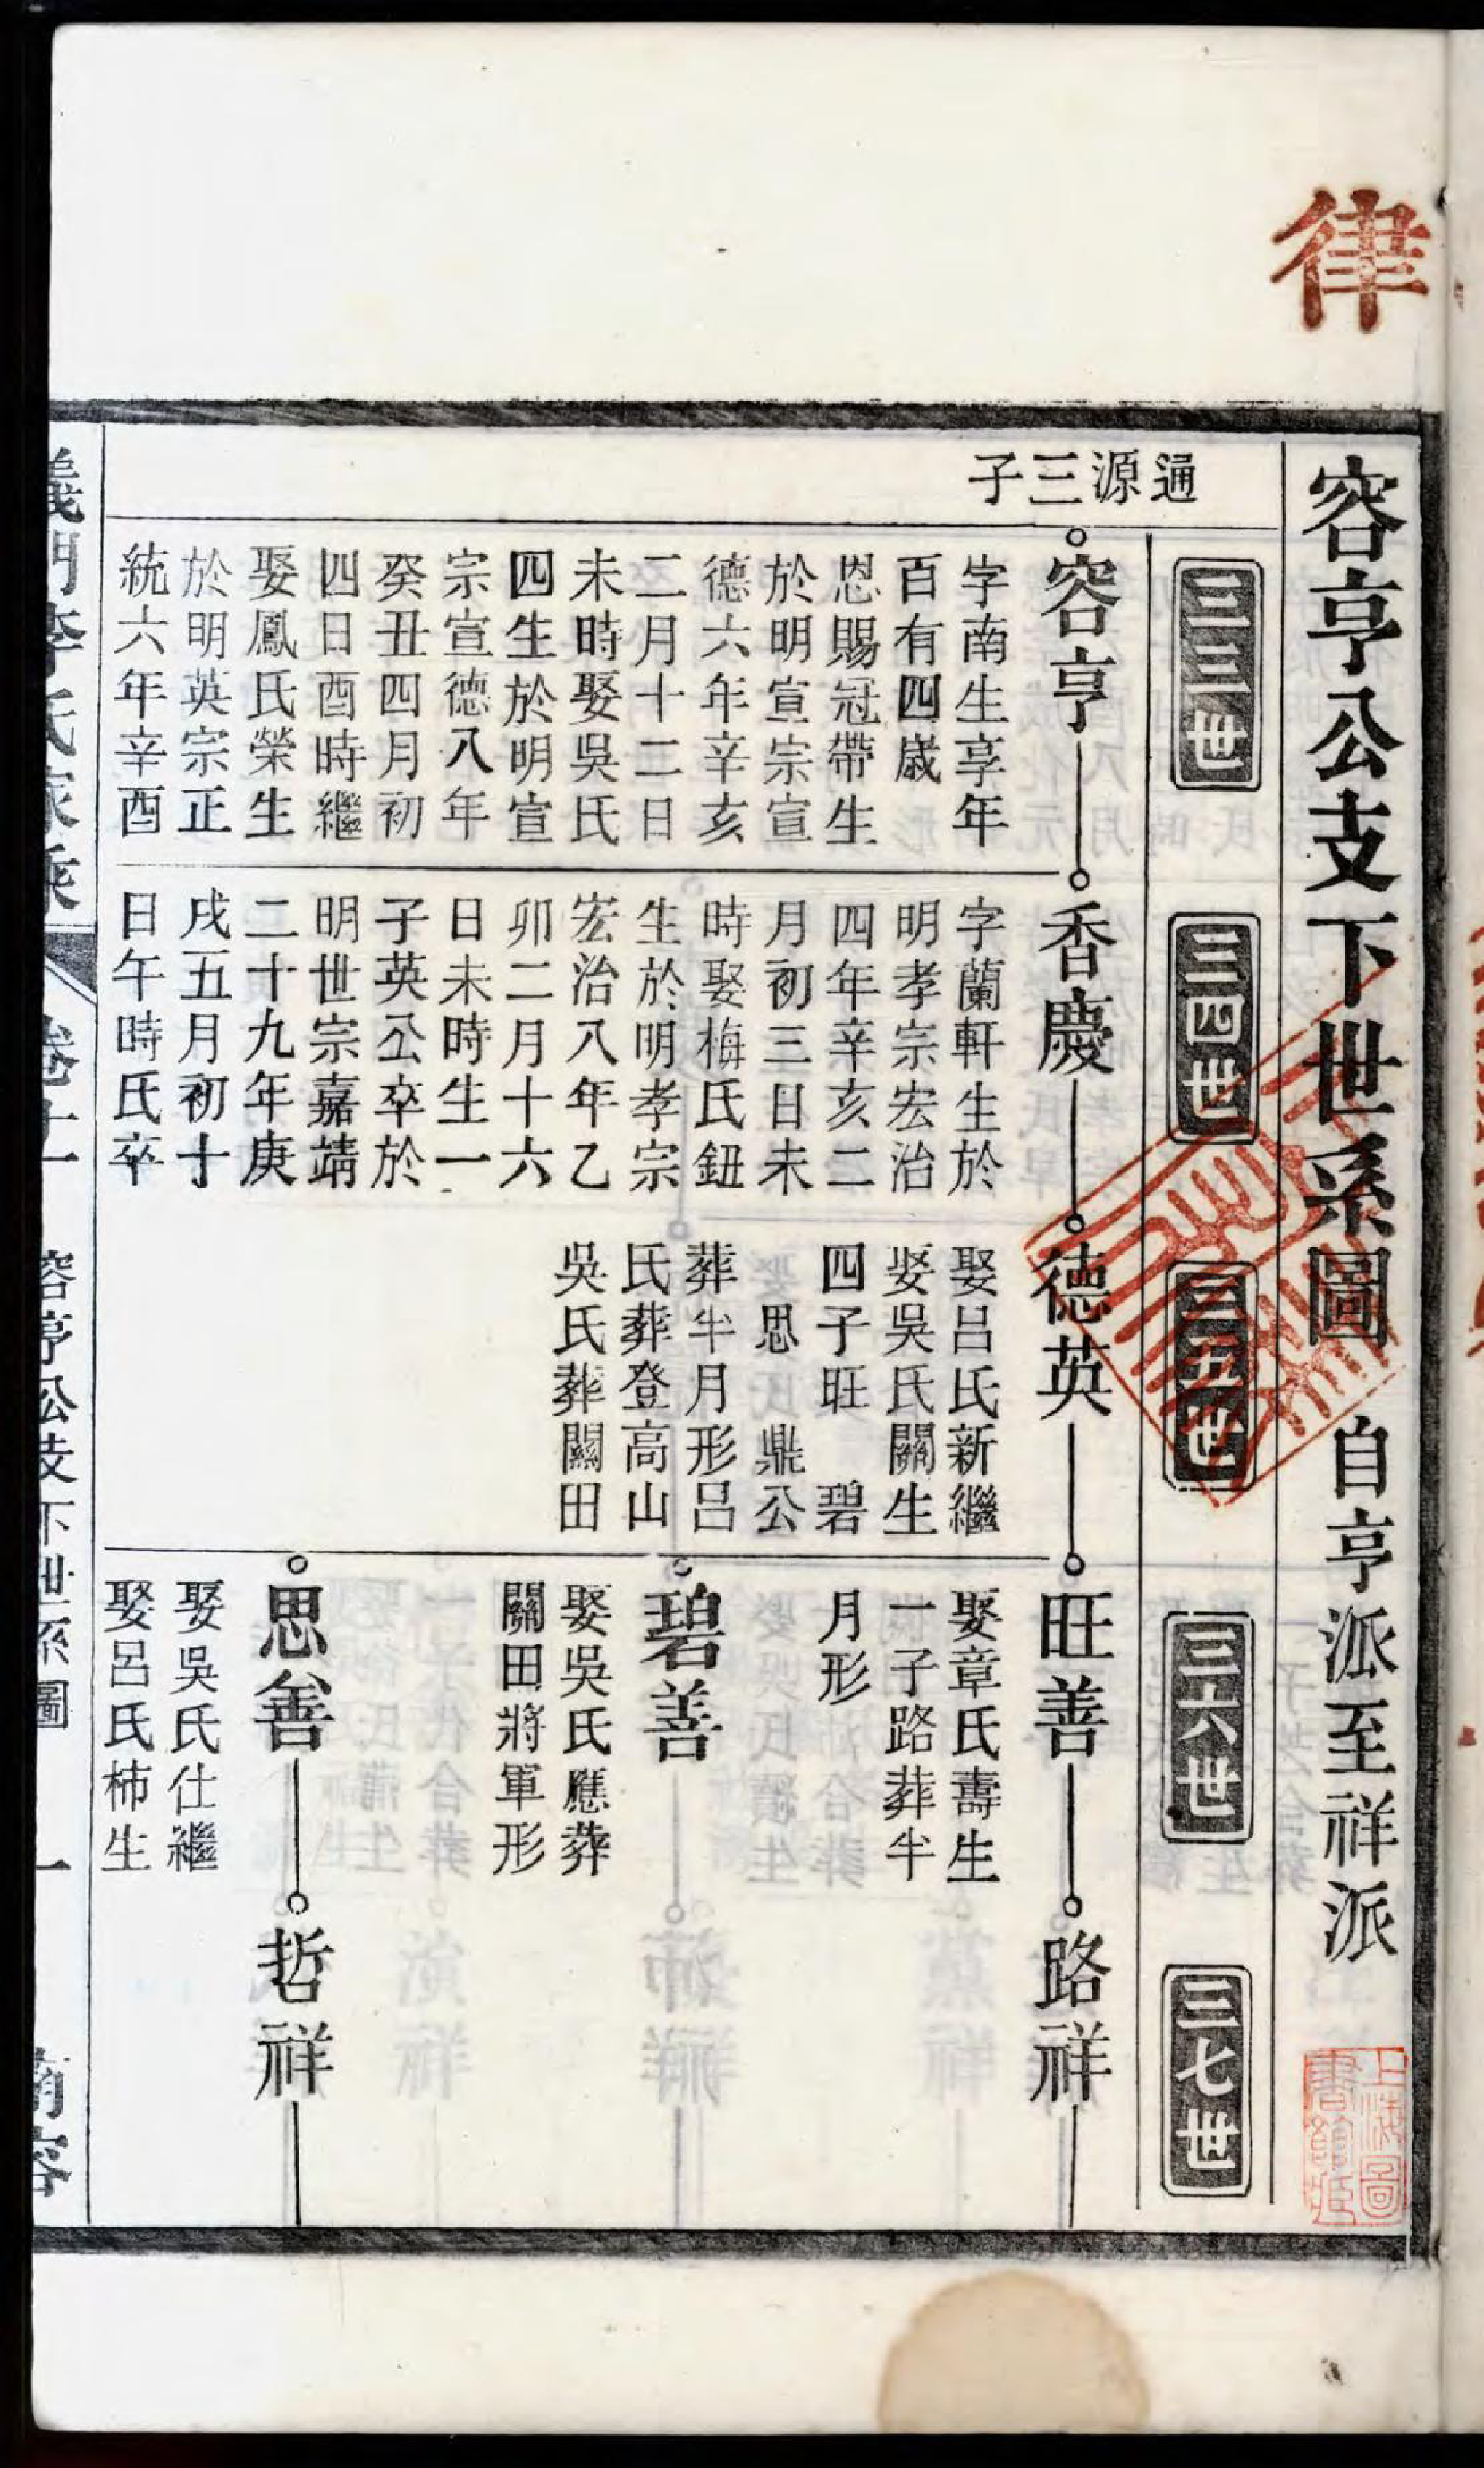 律
容亨公支下世系圖　自亨派至祥派
三三世
三四世
三五世
三六世
三七世
通源三子
容亨
字南生享年
百有四歲
恩賜冠帶生
於明宣宗宣
德六年辛亥
二月十二日
未時娶吳氏
四生於明宣
宗宣德八年
癸丑四月初
四日酉時繼
娶鳳氏榮生
於明英宗正
統六年辛酉
香慶
字蘭軒生於
明孝宗宏治
四年辛亥二
月初三日未
時娶梅氏鈕
生於明孝宗
宏治八年乙
卯二月十六
日未時生一
子英公卒於
明世宗嘉靖
二十九年庚
戌五月初十
日午時氏卒
德英
娶呂氏新繼
娶吳氏關生
四子旺　碧
　思　鼎公
葬半月形呂
氏葬登高山
吳氏葬關田
旺善
娶章氏壽生
一子路葬半
月形
碧善
娶吳氏應葬
關田將軍形
思善
娶吳氏仕繼
娶呂氏柿生
路祥
哲祥
義門李氏家乘
卷十一
容亨公支下世系圖
一
上海圖書館藏